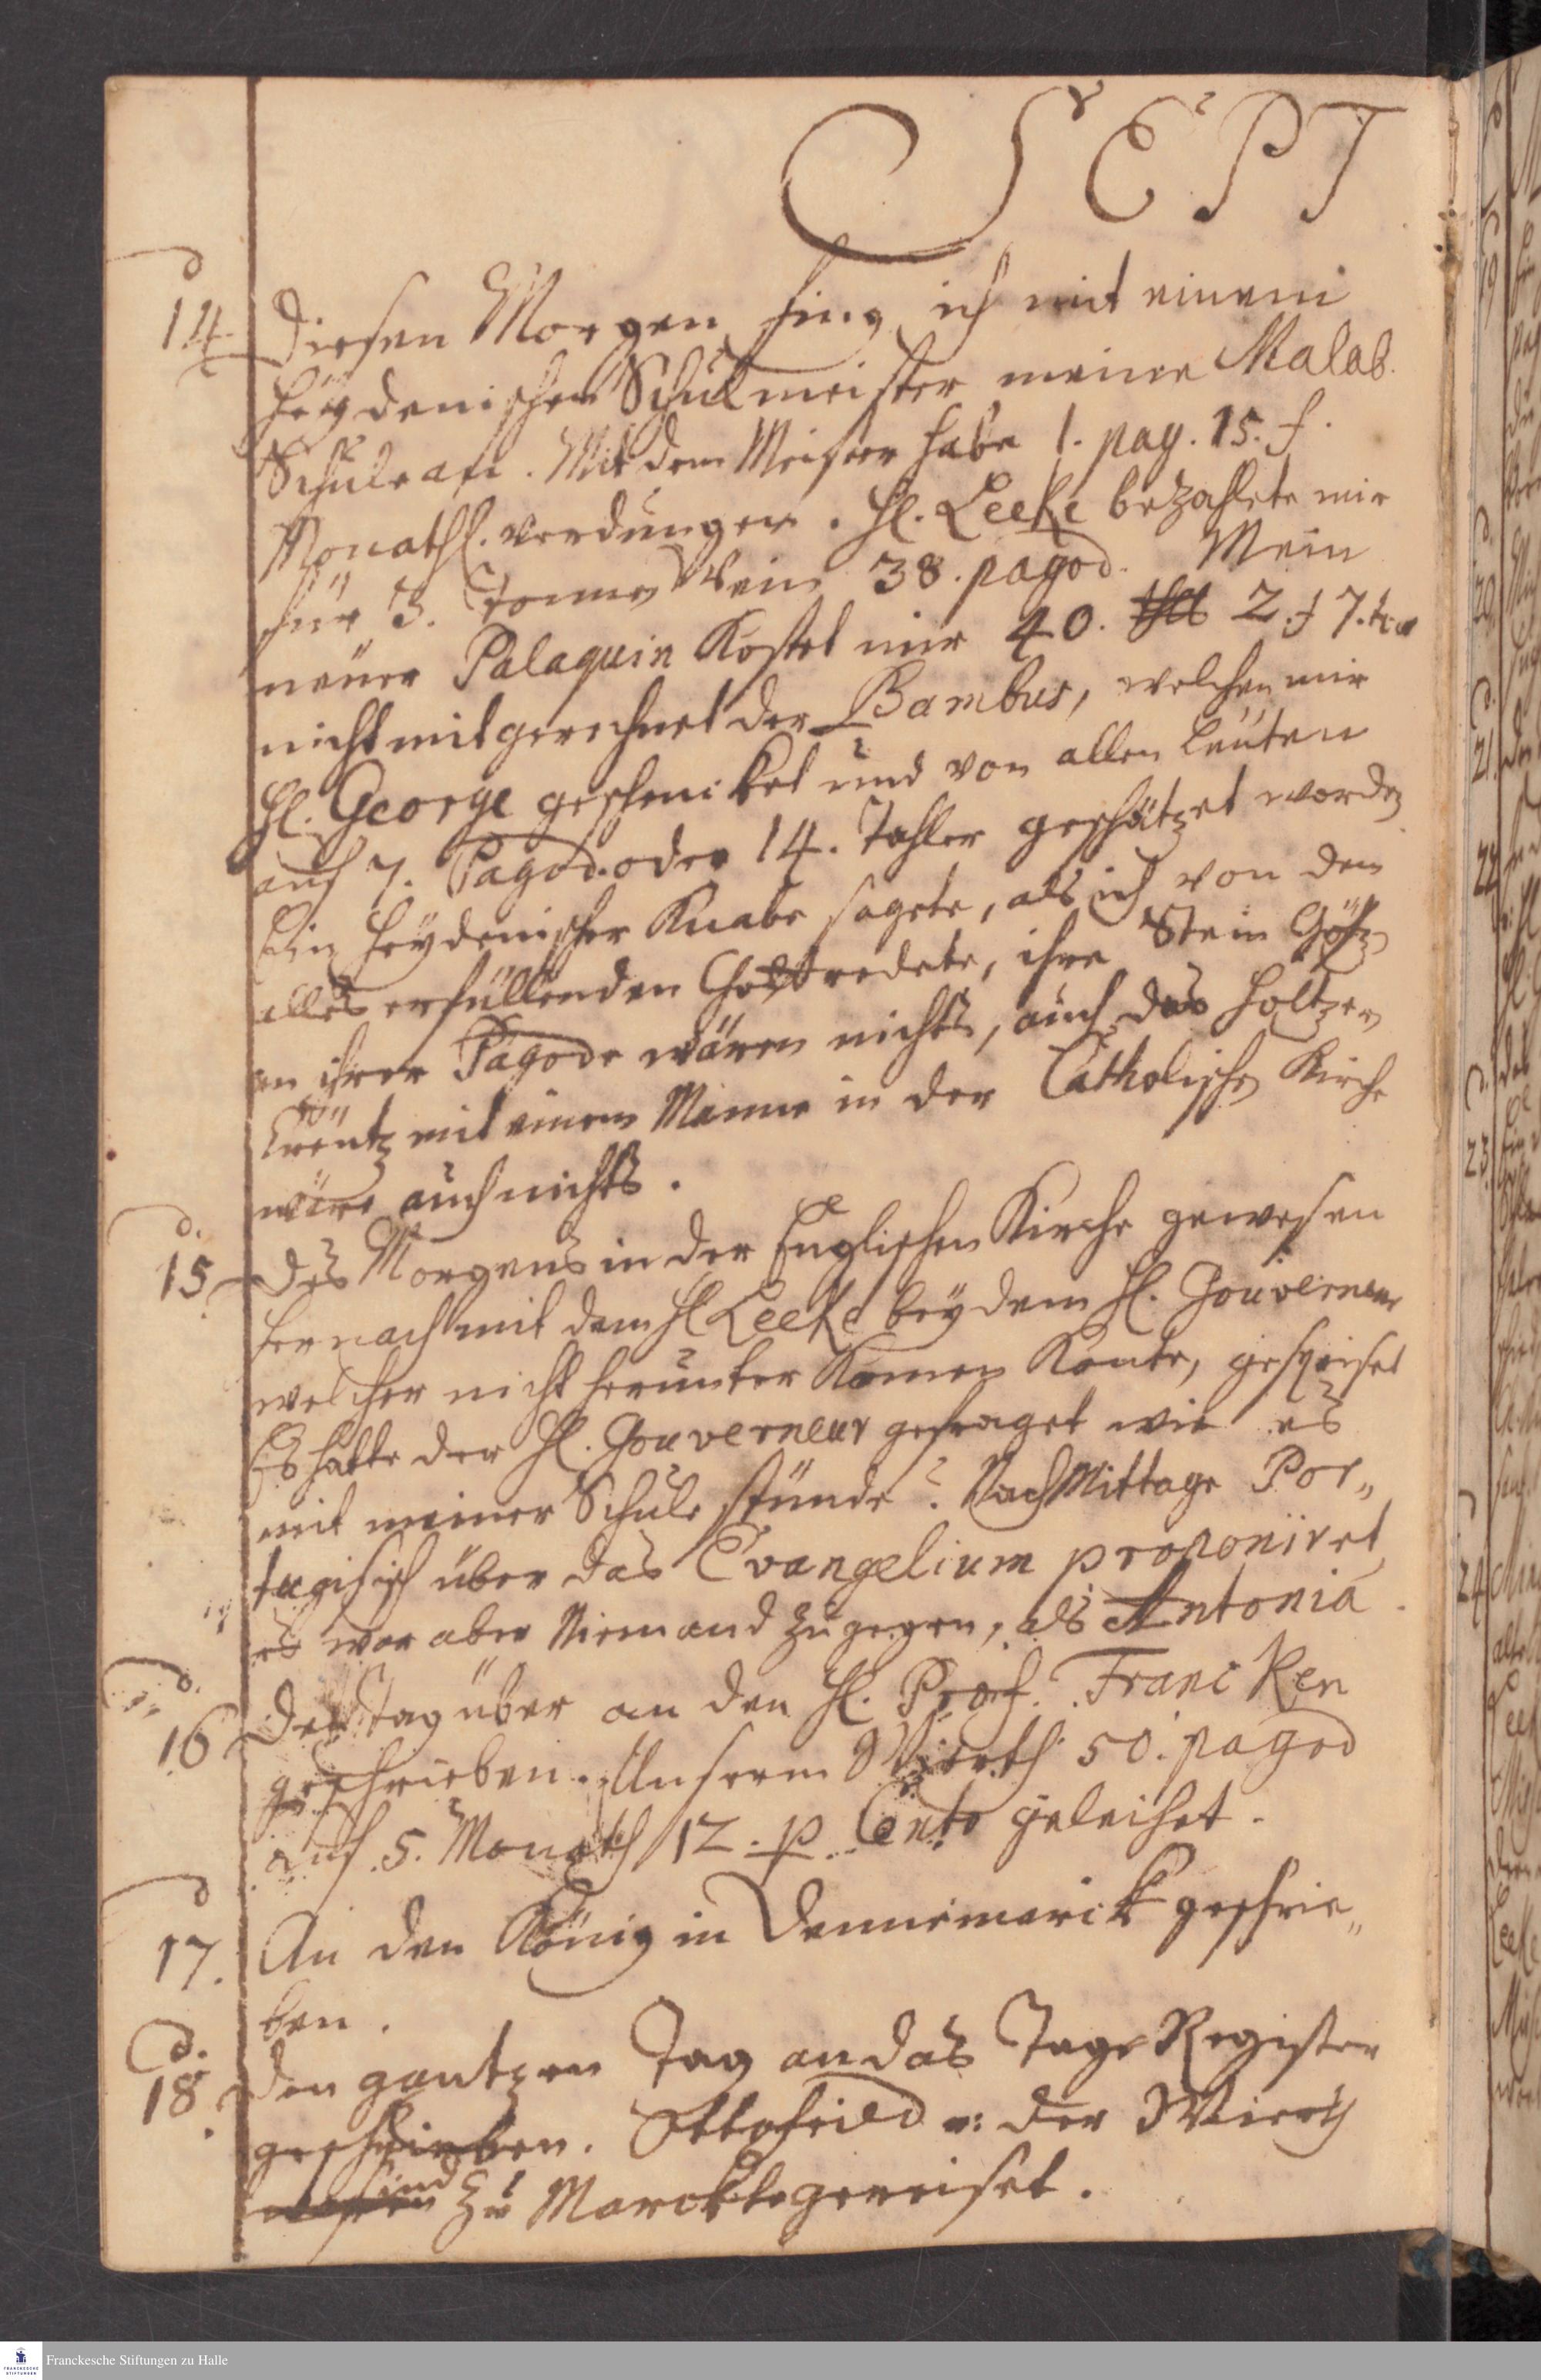 SEPT
d
14. Diesen Morgen fing ich mit einem
heydenischen Schulmeister meine Malab.
Schule an. Mit dem Meister habe 1. pag. 15. f.
Monathl. verdungen. H. Leeke bezahlete mir
für 3. Tonnen Wein 38. pagod. Mein
neuer Palaquin kostet mir 40. thl 2. f 7.
nicht mitgerechnet der Bambus, welchen mir
H. George geschencket und von allen Leuten
auf 7. Pagod. oder 14. Tahler geschätzet worden
Ein heydenischer Knabe sagete, als ich von dem
alles erfüllenden Gott redete, ihre Stein Götz
in ihrer Pagode wären nichts, auch das höltzern
Creutz mit einem Manne in der Catholischen Kirche
wäre auch nichts.
d.
15 Des Morgens in der Englischen Kirche gewesen
hernach mit dem H Leeke bey dem H. Gouverneur
welcher nicht herunter komen konte, gespeiset
Es hatte der H. Gouverneur gefraget wie es
mit meiner Schule stünde? Nach Mittage Por„
tugisisch über das Evangelium proponiret
es war aber Niemand zugegen, als Antonia.
d.
16 Den Tag über an den H. Prof. Francken
geschrieben. Unserm Wierth 50. pagod
auf 5. Monath 12. p Cento geleihet.
d
17. An den König in Dennemarck geschrie„
ben.
d.
18. Den gantzen Tag an das Tage Register
geschrieben. Ottofeild u: der Wierth
sind zu Marckte gereiset.
Franckesche Stiftungen zu Halle